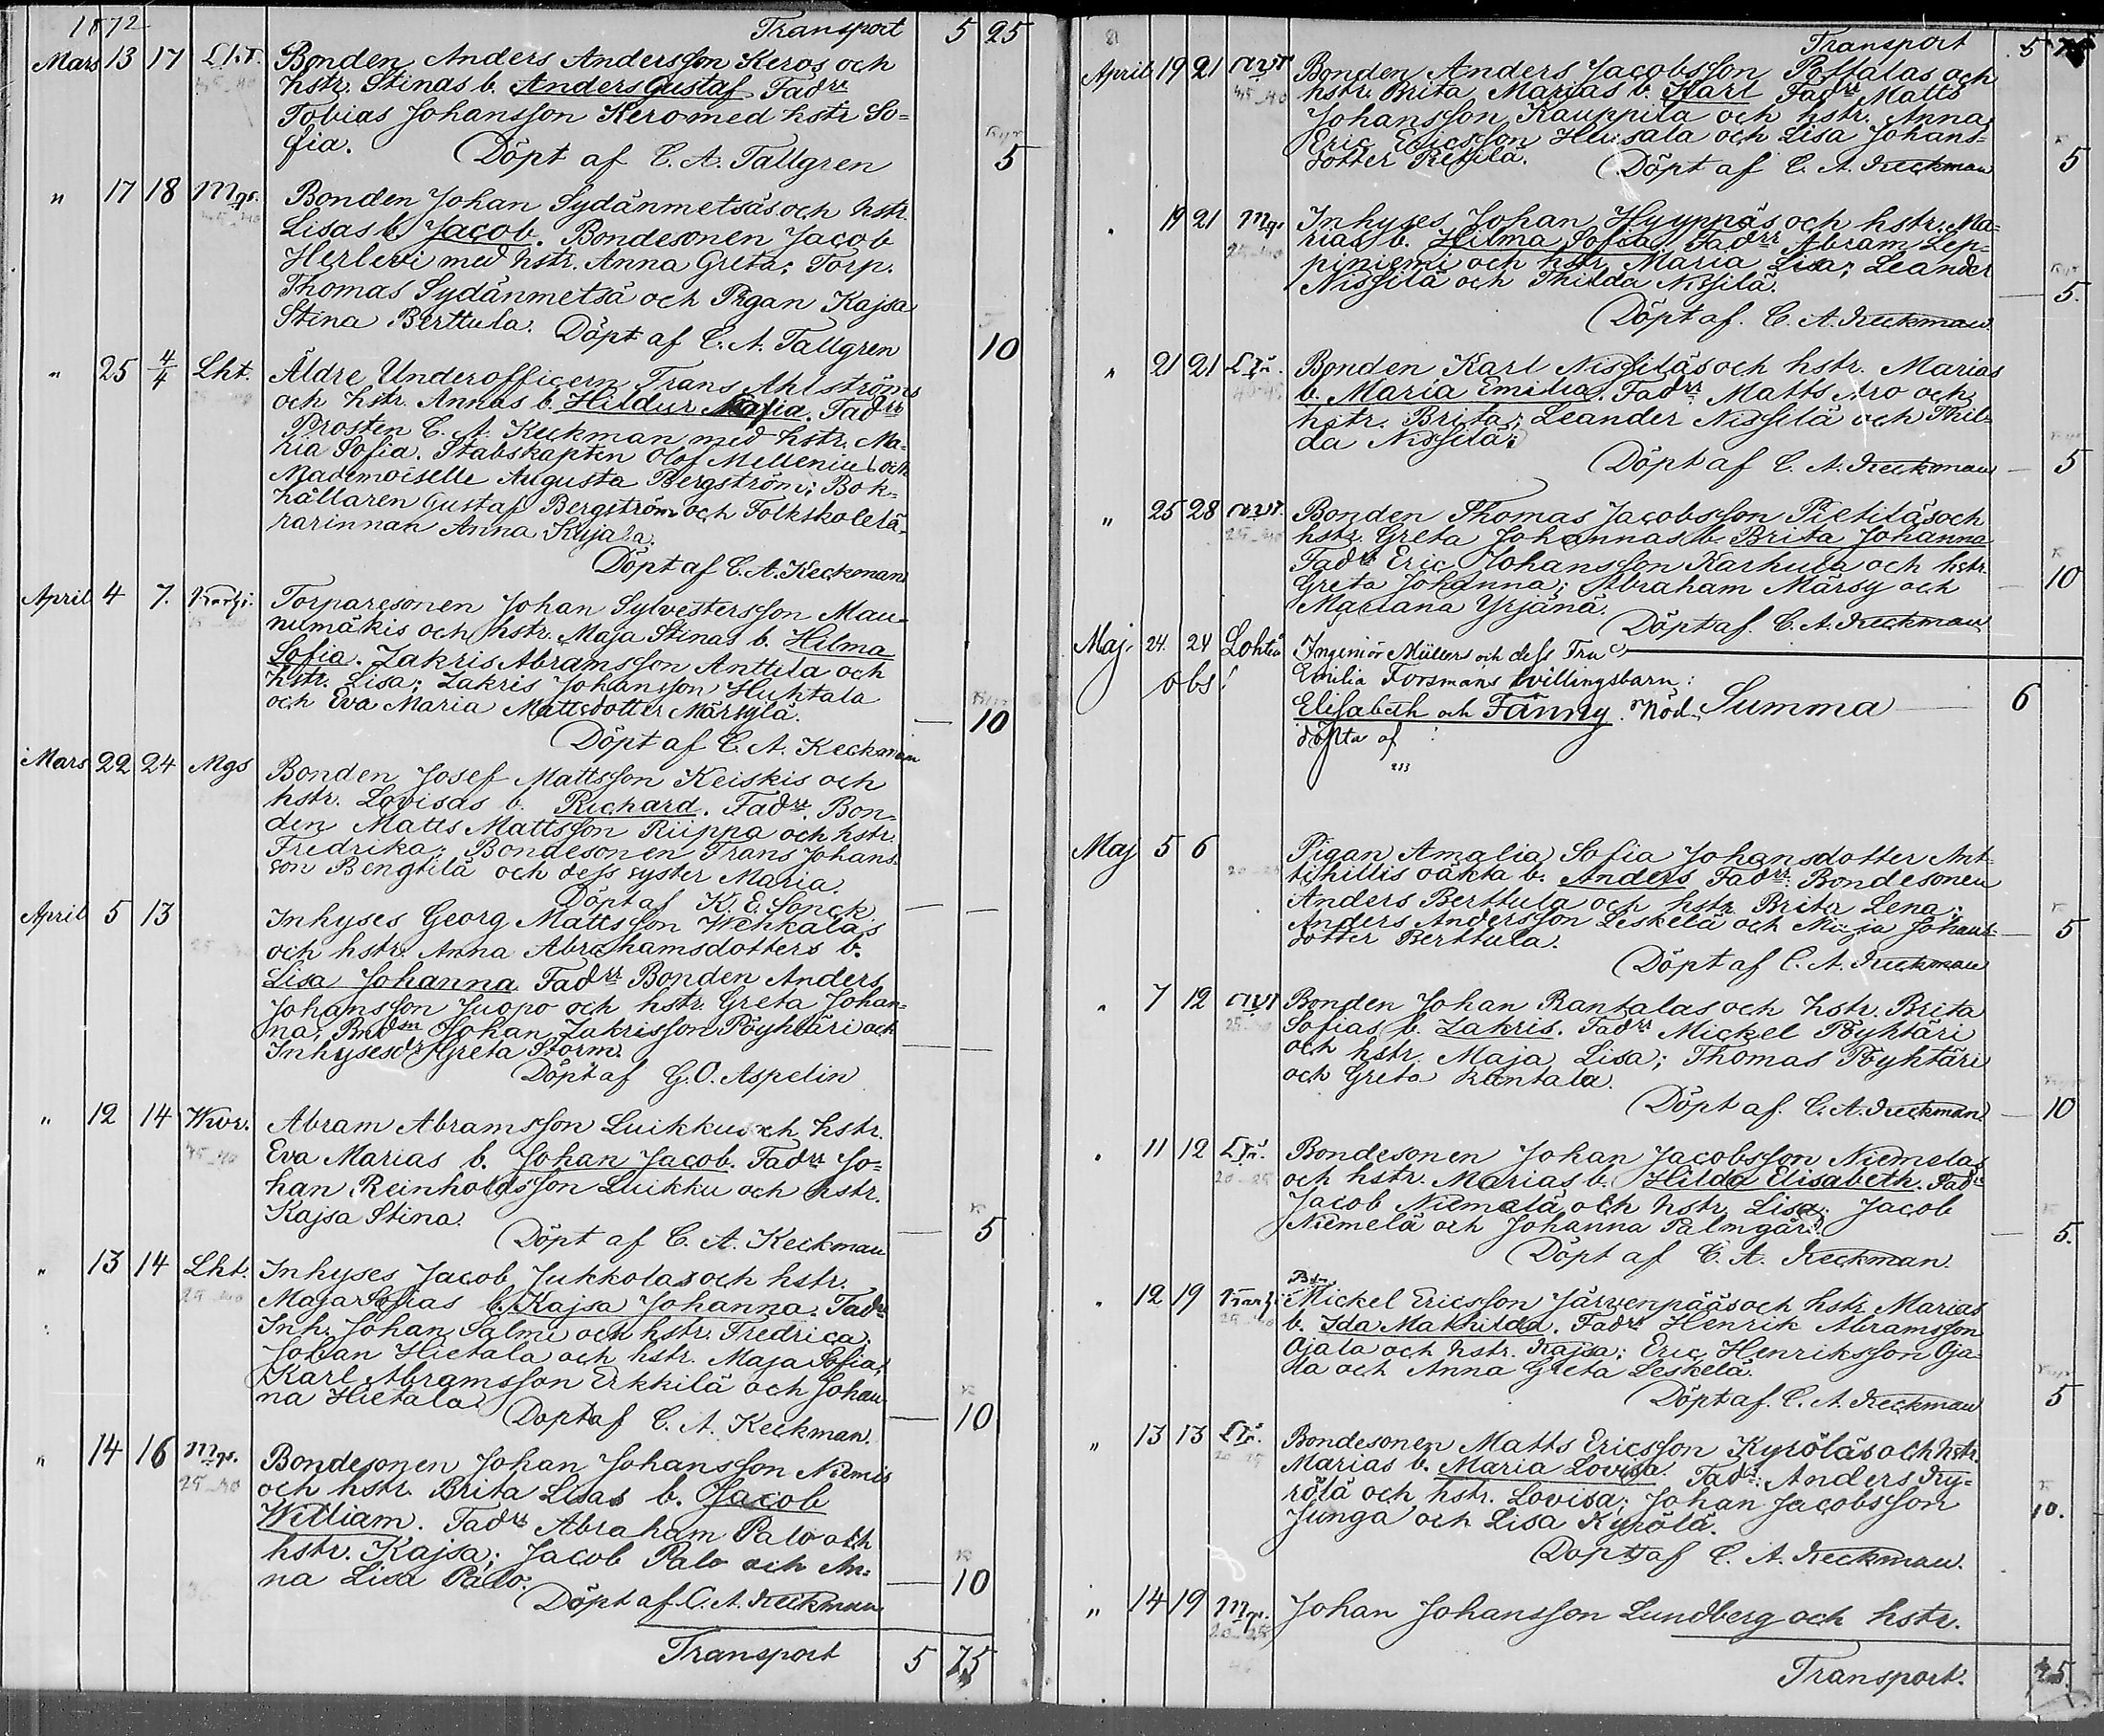 1872 Transport 5 25
Mars 13 17 Lht. Bonden Anders Andersson Keros och
hstr. Stinas b. Anders Gustaf Fadrr
Tobias Johansson Kero med hstr So-
fia. Döpt af C. A. Tallgren 5
" 17 18 Mgs. Bonden Johan Sydänmetsäs och hstr.
Lisas b. Jacob. Bondesonen Jacob
Herlevi med hstr. Anna Greta; Torp.
Thomas Sydänmetsä och Pigan Kajsa
Stina Berttula. Döpt af C. A. Tallgren 10
" 25 4/4 Lht. Äldre Underofficern Frans Ahlströms
och hstr. Annas b. Hildur Maria. Fadrr
Prosten C. A. Keckman med hstr. Ma-
ria Sofia. Stabskapten Olof Mellenius och
Mademoiselle Augusta Bergström; Bok-
hållaren Gustaf Bergström och Folkskolelä-
rarinnan Anna Kujala.
Döpt af C. A. Keckman
April 4 7. Torparesonen Johan Sylvestersson Mau-
numäkis och hstr. Maja Stinas b. Hilma
Sofia. Zakris Abramsson Anttila och
hstr. Lisa; Zakris Johansson Huhtala
och Eva Maria Mattsdotter Märsylä.
Döpt af C. A. Keckman 10
Mars 22 24 Mgs Bonden Josef Mattsson Keiskis och
hstr. Lovisas b. Richard. Fadrr. Bon-
den Matts Mattsson Riippa och hstr.
Fredrika; Bondesonen Frans Johans-
son Bengtilä och dess syster Maria.
Döpt af K. E. Sonck.
April 5 13 Inhyses Georg Mattsson Wehkalas
och hstr. Anna Abrahamsdotters b.
Lisa Johanna Fadrr Bonden Anders
Johansson Juopo och hstr. Greta Johan-
na; Bndsn Johan Zakrisson Pöyhtäri och
Inhysesdr Greta Storm.
Döpt af G. O. Aspelin
" 12 14 Wwr. Abram Abramsson Luikkus och hstr.
Eva Marias b. Johan Jacob. Fadrr Jo-
han Reinholdsson Luikku och hstr.
Kajsa Stina.
Döpt af C. A. Keckman 5
" 13 14 Lht. Inhyses Jacob Jukkolas och hstr.
25-40 Maja Sofias b. Kajsa Johanna. Fadrr
Inh. Johan Salmi och hstr. Fredrica;
Johan Hietala och hstr. Maja Sofia;
Karl Abramsson Erkkilä och Johan-
na Hietala.
Döpt af C. A. Keckman. 10
" 14 16 Mgs. Bondesonen Johan Johansson Niemis
25-40 och hstr. Brita Lisas b. Jacob
William. Fadrr Abraham Palo och
hstr. Kajsa; Jacob Palo och An-
na Lisa Palo. 10
Döpt af C. A. Keckman
Transport 5 75
Transport 5 75
April 19 21 Bonden Anders Jacobsson Passalas och
hstr. Brita Marias b. Karl Fadrr Matts
Johansson Kauppila och hstr. Anna;
Eric Ericsson Huusala och Lisa Johans-
dotter Pietilä. Döpt af C. A. Keckman 5
" 19 21 Mgs Inhyses Johan Hyyppäs och hstr. Ma-
rias b. Hilma Sofia. Fadrr Abram Lep-
piniemi och hstr. Maria Lisa; Leander
Nissilä och Thilda Nissilä. 5.
Döpt af C. A. Keckman.
" 21 21 Bonden Karl Nissiläs och hstr. Marias
b. Maria Emilia. Fadrr Matts Aro och
hstr. Brita; Leander Nissilä och Thil-
da Nissilä.
Döpt af C. A. Keckman 5
" 25 28 Bonden Thomas Jacobsson Pietiläs och
hstr. Greta Johannas b. Brita Johanna
Fadrr Eric Johansson Karhula och hstr.
Greta Johanna; Abraham Märsy och 10
Mariana Yrjänä.
Döpt af C. A. Keckman
Maj 24. 24 Lohteå Ingeniör Müllers och dess Fru
obs! Emilia Forsmans tvillingsbarn:
Elisabeth och Fanny. Nöd. Summa 6
döpta af
Maj 5 6 Pigan Amalia Sofia Johansdotter Ant-
tihillis oäkta b. Anders Fadrr: Bondesonen
Anders Berttula och hstr. Brita Lena;
Anders Andersson Leskelä och Maja Johans-
dotter Berttula. 5
Döpt af C. A. Keckman
" 7 12 Bonden Johan Rantalas och hstr. Brita
Sofias b. Zakris. Fadrr Mickel Pöyhtäri
och hstr. Maja Lisa; Thomas Pöyhtäri
och Greta Rantala.
Döpt af C. A. Keckman. 10
" 11 12 Bondesonen Johan Jacobsson Niemeläs
och hstr. Marias b. Hilda Elisabeth. Fadrr
Jacob Niemelä och hstr. Lisa; Jacob
Niemelä och Johanna Palmgård. 5.
Döpt af C. A. Keckman.
" 12 19 Mickel Ericsson Järvenpääs och hstr. Marias
b. Ida Mathilda. Fadrr Henrik Abramsson
Ojala och hstr. Kajsa; Eric Henriksson Oja-
la och Anna Greta Leskelä.
Döpt af C. A. Keckman 5
" 13 13 Bondesonen Matts Ericsson Kyröläs och hstr.
Marias b. Maria Lovisa. Fadrr. Anders Ky-
rölä och hstr. Lovisa; Johan Jacobsson 10.
Junga och Lisa Kyrölä.
Döpt af C. A. Keckman.
" 14 19 Mgs. Johan Johansson Lundberg och hstr.
Transport. 45.